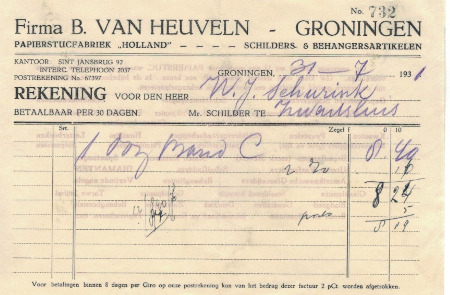 No. 732
Firma B. VAN HEUVELN - GRONINGEN
PAPIERSTUCFABRIEK „HOLLAND" - - - - SCHILDERS- & BEHANGERSARTIKELEN
KANTOOR: SINT JANSBRUG 97
INTERC. TELEPHOON 2037
POSTREKENING No. 67397
GRONINGEN, 31-7 1931
REKENING VOOR DEN HEER W. J. Schurink
BETAALBAAR PER 30 DAGEN. Mr. SCHILDER TE Zwartsluis
Set. Zegel f 0 10
1 doz Band C 8.40
2 %
8 2
porto 5
8 19
Voor betalingen binnen 8 dagen per Giro op onze postrekening kan van het bedrag dezer factuur 2 pCt. worden afgetrokken.